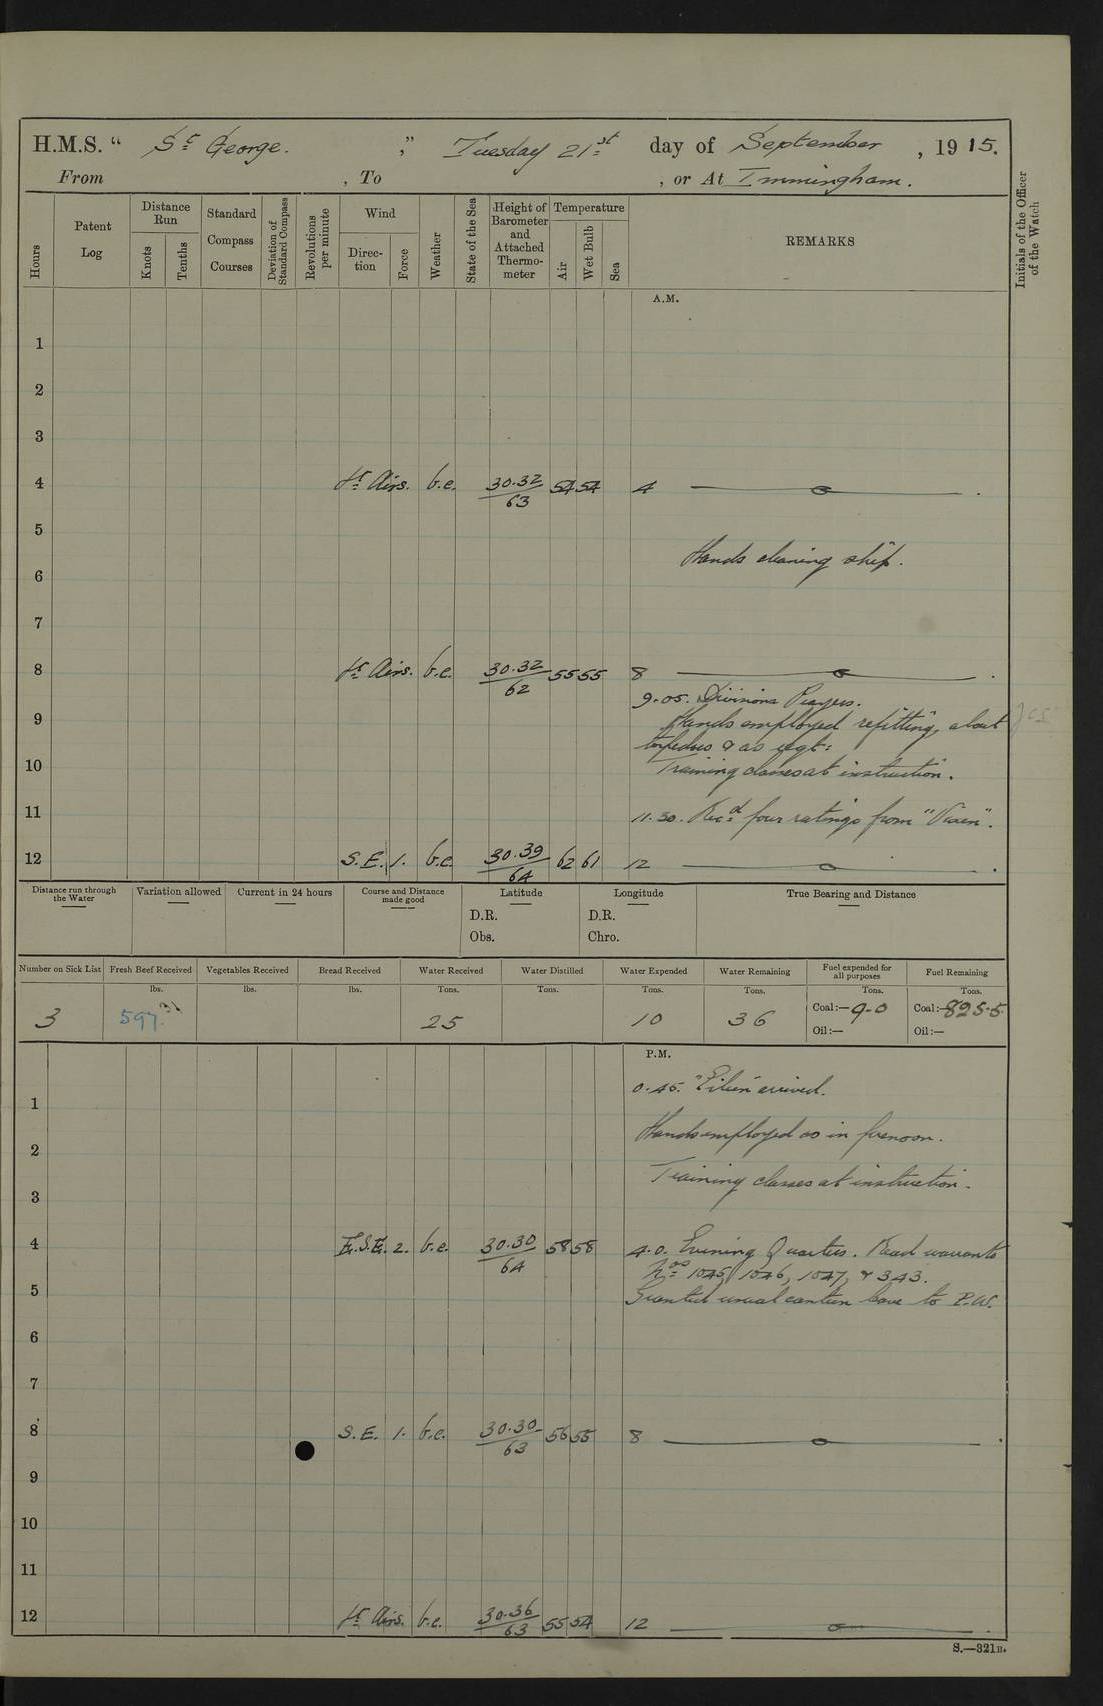 H.M.S. " St George. ," Tuesday 21st day of September, 1915.
From , To , or At Immingham.
Hours
Patent Log
Distance Run
Knots
Tenths
Standard Compass Courses
Deviation of Standard Compass
Revolutions per minute
Wind
Direction
Force
Weather
State of the Sea
Height of Barometer and Attached Thermometer
Temperature
Air
Wet Bulb
Sea
REMARKS
Initials of the Officer of the Watch
A.M.
1
2
3
4 Lt Airs. b.c. 30.32/63 54 54 4
5
Hands cleaning ship.
6
7
8 Lt Airs. b.c. 30.32/62 55 55 8
9.05. Divisions Prayers.
9 Hands employed refitting, about
torpedoes & as reqt:
10 Training classes at instruction.
11 11.30. Recd four ratings from " ".
12 S.E. 1. b.c. 30.39/64 62 61 12
Distance run through the Water
Variation allowed
Current in 24 hours
Course and Distance made good
Latitude
D.R.
Obs.
Longitude
D.R.
Chro.
True Bearing and Distance
Number on Sick List
Fresh Beef Received
Vegetables Received
Bread Received
Water Received
Water Distilled
Water Expended
Water Remaining
Fuel expended for all purposes
Fuel Remaining
lbs. lbs. lbs. Tons. Tons. Tons. Tons. Tons. Tons.
3 597. 25 10 36 Coal:—9.0 Coal:—825.5
Oil:— Oil:—
P.M.
0.45. " " arrived.
1
Hands employed as in forenoon.
2
Training classes at instruction.
3
4 E.S.E. 2. b.c. 30.30/64 58 58 4.0. Evening Quarters. Read warrants
Nos 1045, 1046, 1047, & 343.
5 Granted usual canteen leave to P.W.
6
7
8 S.E. 1. b.c. 30.30/63 56 55 8
9
10
11
12 Lt Airs. b.c. 30.36/63 55 54 12
S.—321B.